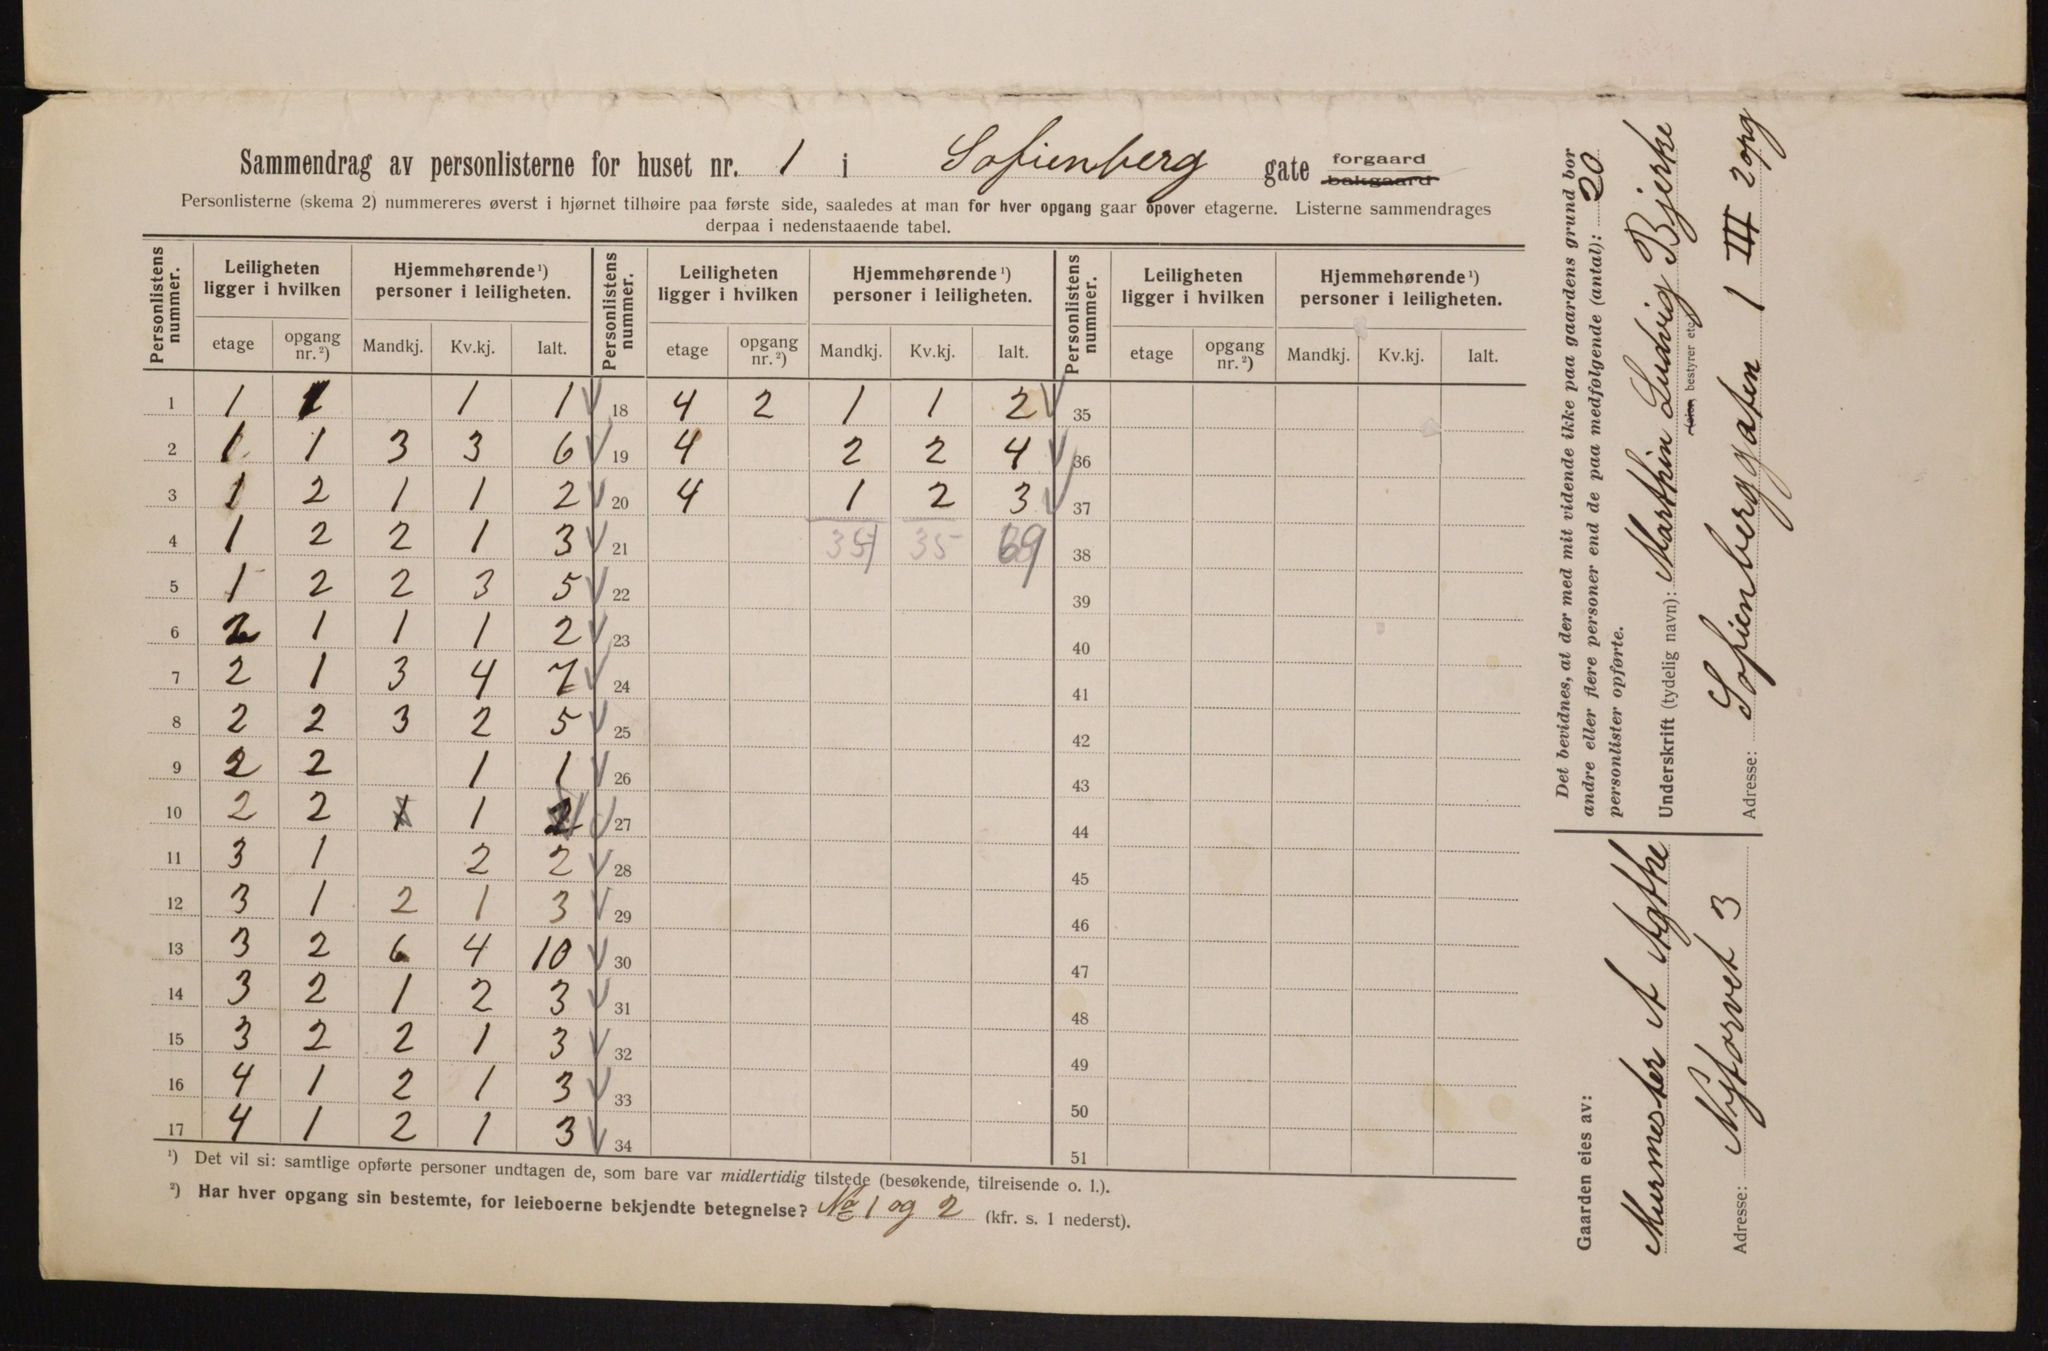 Sammendrag av personlisterne for huset nr. 1 i Sofienberg gate forgaard bakgaard
Personlisterne (skema 2) nummereres øverst i hjørnet tilhøire paa første side, saaledes at man for hver opgang gaar opover etagerne. Listerne sammendrages
derpaa i nedenstaaende tabel.
Personlistens nummer. Leiligheten ligger i hvilken Hjemmehørende¹) personer i leiligheten. Personlistens nummer. Leiligheten ligger i hvilken Hjemmehørende¹) personer i leiligheten. Personlistens nummer. Leiligheten ligger i hvilken Hjemmehørende¹) personer i leiligheten.
etage opgang nr.²) Mandkj. Kv.kj. Ialt. etage opgang nr.²) Mandkj. Kv.kj. Ialt. etage opgang nr.²) Mandkj. Kv.kj. Ialt.
1 1 1 1 1 18 4 2 1 1 2 35
2 1 1 3 3 6 19 4 2 2 4 36
3 1 2 1 1 2 20 4 1 2 3 37
4 1 2 2 1 3 21 35 69 38
5 1 2 2 3 5 22 39
6 2 1 1 1 2 23 40
7 2 1 3 4 7 24 41
8 2 2 3 2 5 25 42
9 2 2 1 1 26 43
10 2 2 1 1 27 44
11 3 1 2 2 28 45
12 3 1 2 1 3 29 46
13 3 2 6 4 10 30 47
14 3 2 1 2 3 31 48
15 3 2 2 1 3 32 49
16 4 1 2 1 3 33 50
17 4 1 2 1 3 34 51
¹) Det vil si: samtlige opførte personer undtagen de, som bare var midlertidig tilstede (besøkende, tilreisende o. l.).
²) Har hver opgang sin bestemte, for leieboerne bekjendte betegnelse? No 1 og 2 (kfr. s. 1 nederst).
Det bevidnes, at der med mit vidende ikke paa gaardens grund bor
andre eller flere personer end de paa medfølgende (antal): 20
personlister opførte.
Underskrift (tydelig navn): Marthin Ludvig Bjerke
(eier, bestyrer etc.
Adresse: Sofienberggaten 1 III 2 opg
Gaarden eies av:
Murmester A Agthe
Adresse: Nytorvet 3